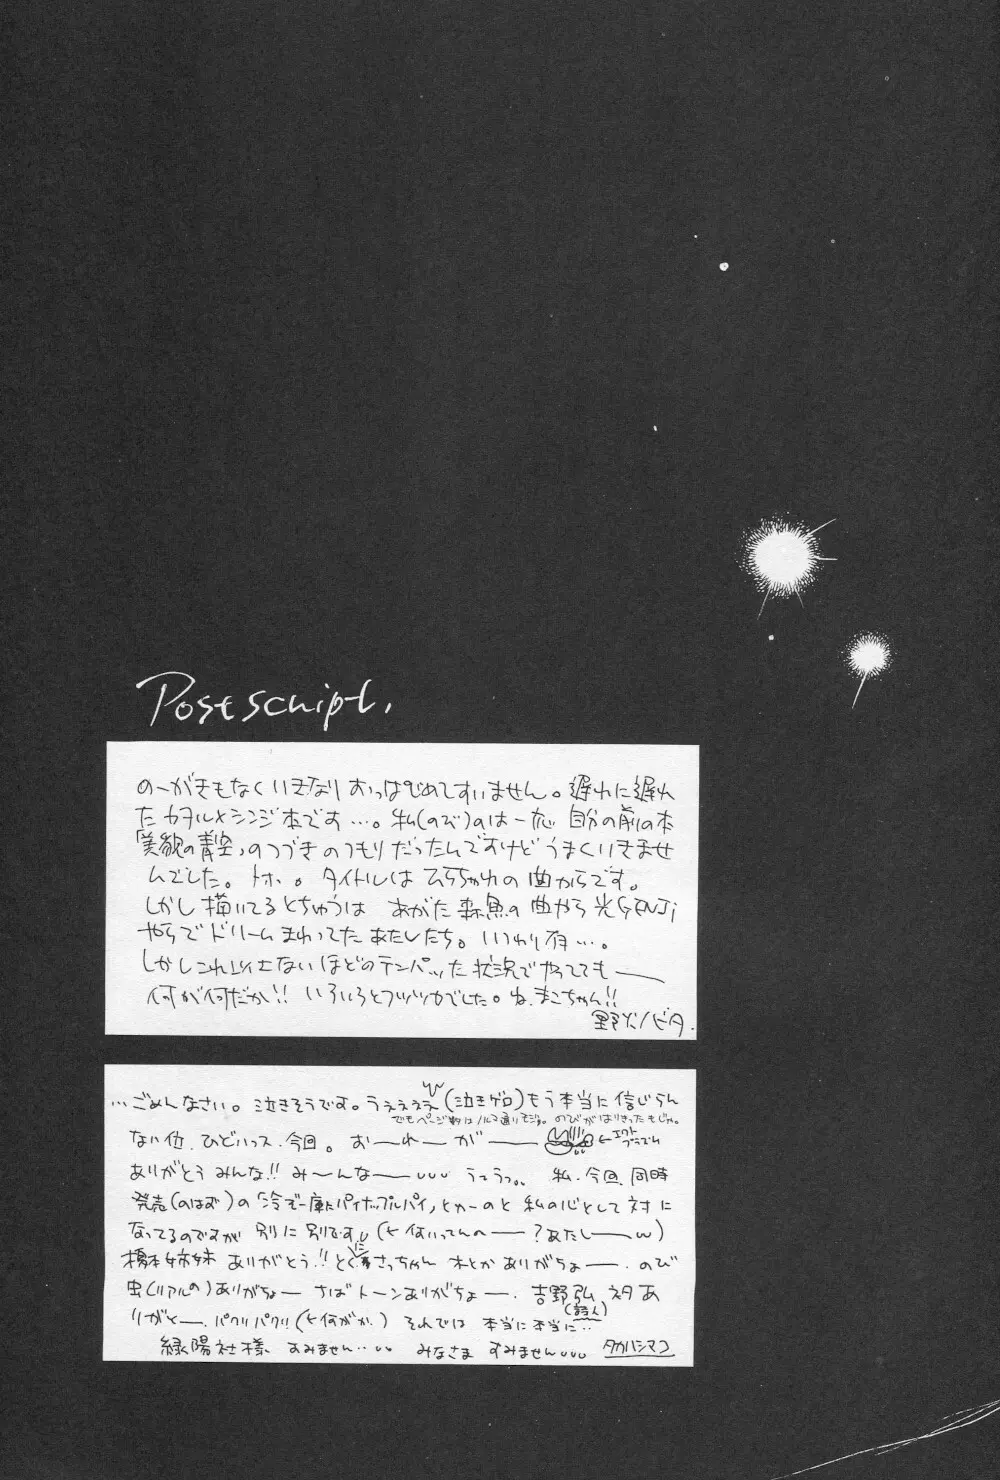 Postscript.
のーがきもなくいきなりおっぱじめてすいません。遅れに遅れ
たカヲル×シンジ本です…。私(のび)のは一応 自分の前の本
「美貌の青空」のつづきのつもりだったんですけどうまくいきませ
んでした。トホ。。タイトルは の曲からです。
しかし描いてるとちゅうは あがた森魚の曲やら光GENJI
やらでドリームまわってたあたしたち。いつわり有…。
しかしこれ以上ないほどのテンパッた状況でやってても——
何が何だか!! いろいろとフツツカでした。ね、まこちゃん!!
野火ノビタ.
…ごめんなさい。泣きそうです。うぇぇぇぇ(泣きゲロ)もう本当に信じらん
でもページ数はノルマ通りモジャ。のびがはりきったもじゃ。
ない位、ひどいっス、今回。お—れ—が—— ←エクト プラズム
ありがとうみんな!! み—んな—— うっうっ。。 私、今回、同時
発売(のはず)の「冷ぞー庫にパイナップルパイ」とかーのと 私の心として対に
なってるのですが 別に別です。(←何いってんの——?あたし——w)
橋本姉妹 ありがとう!! とくにまさっちゃん ホとかありがちょ——. のび
虫(リアルの)ありがちょ— さばトーンありがちょ—. 吉野弘 ネタあ
(詩人)
りがと—. パクリパクリ(←何がか.) それでは 本当に本当に‥
緑陽社様 すみません‥ みなさま すみません タカハシマコ